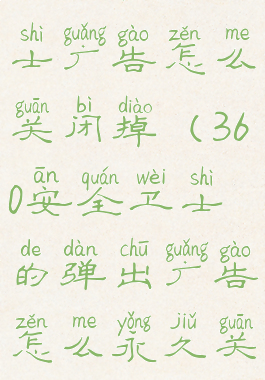 shì guǎng gào zěn me
士广告怎么
guān bì diào
关闭掉（36
ān quán wèi shì
0安全卫士
de dàn chū guǎng gào
的弹出广告
zěn me yǒng jiǔ guān
怎么永久关